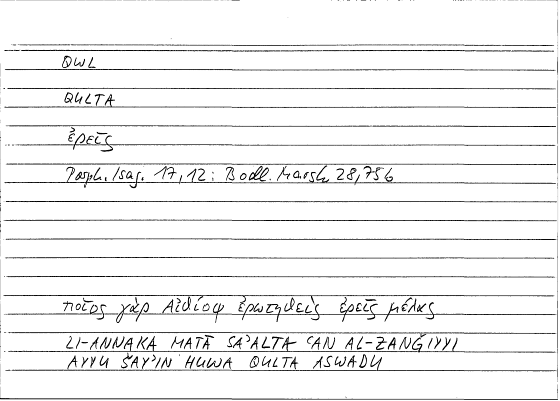 QWL
QULTA
ἐρεῖς
Porph. Isag. 17,12: Bodl. Marsh 28,756
ποῖος γὰρ Αἰθίοψ ἐρωτηθεὶς ἐρεῖς μέλας
LI-ANNAKA MATĀ SAʾALTA ʿAN AL-ZANǦIYYI
AYYU ŠAYʾIN HUWA QULTA ASWADU